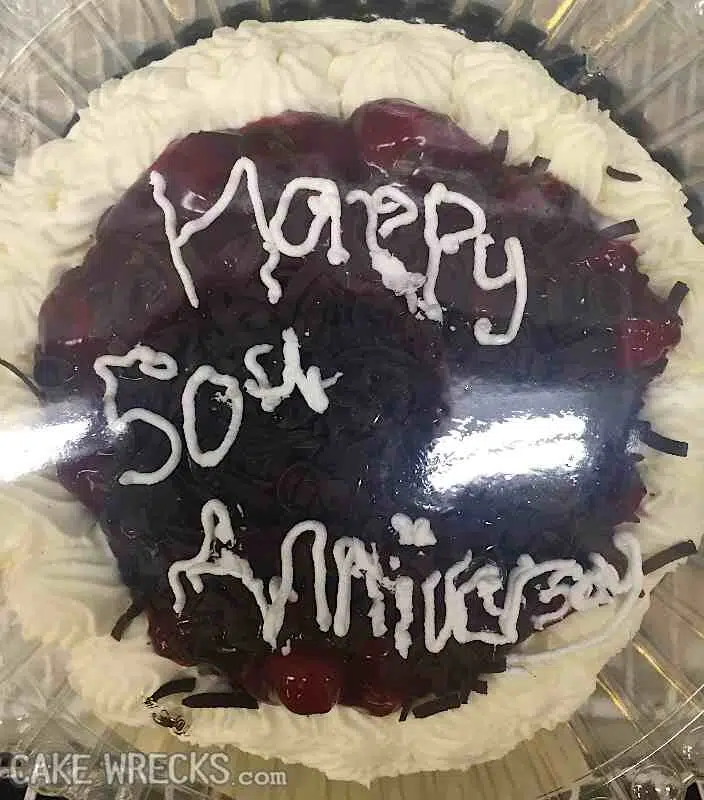 Happy
50st
Anniversay
CAKE WRECKS.com